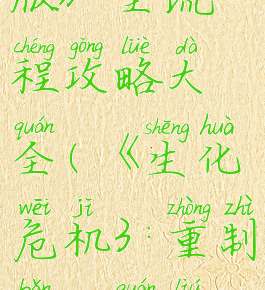 chéng gōng lüè dà
程攻略大
quán shēng huà
全(《生化
wēi jī zhòng zhì
危机3:重制